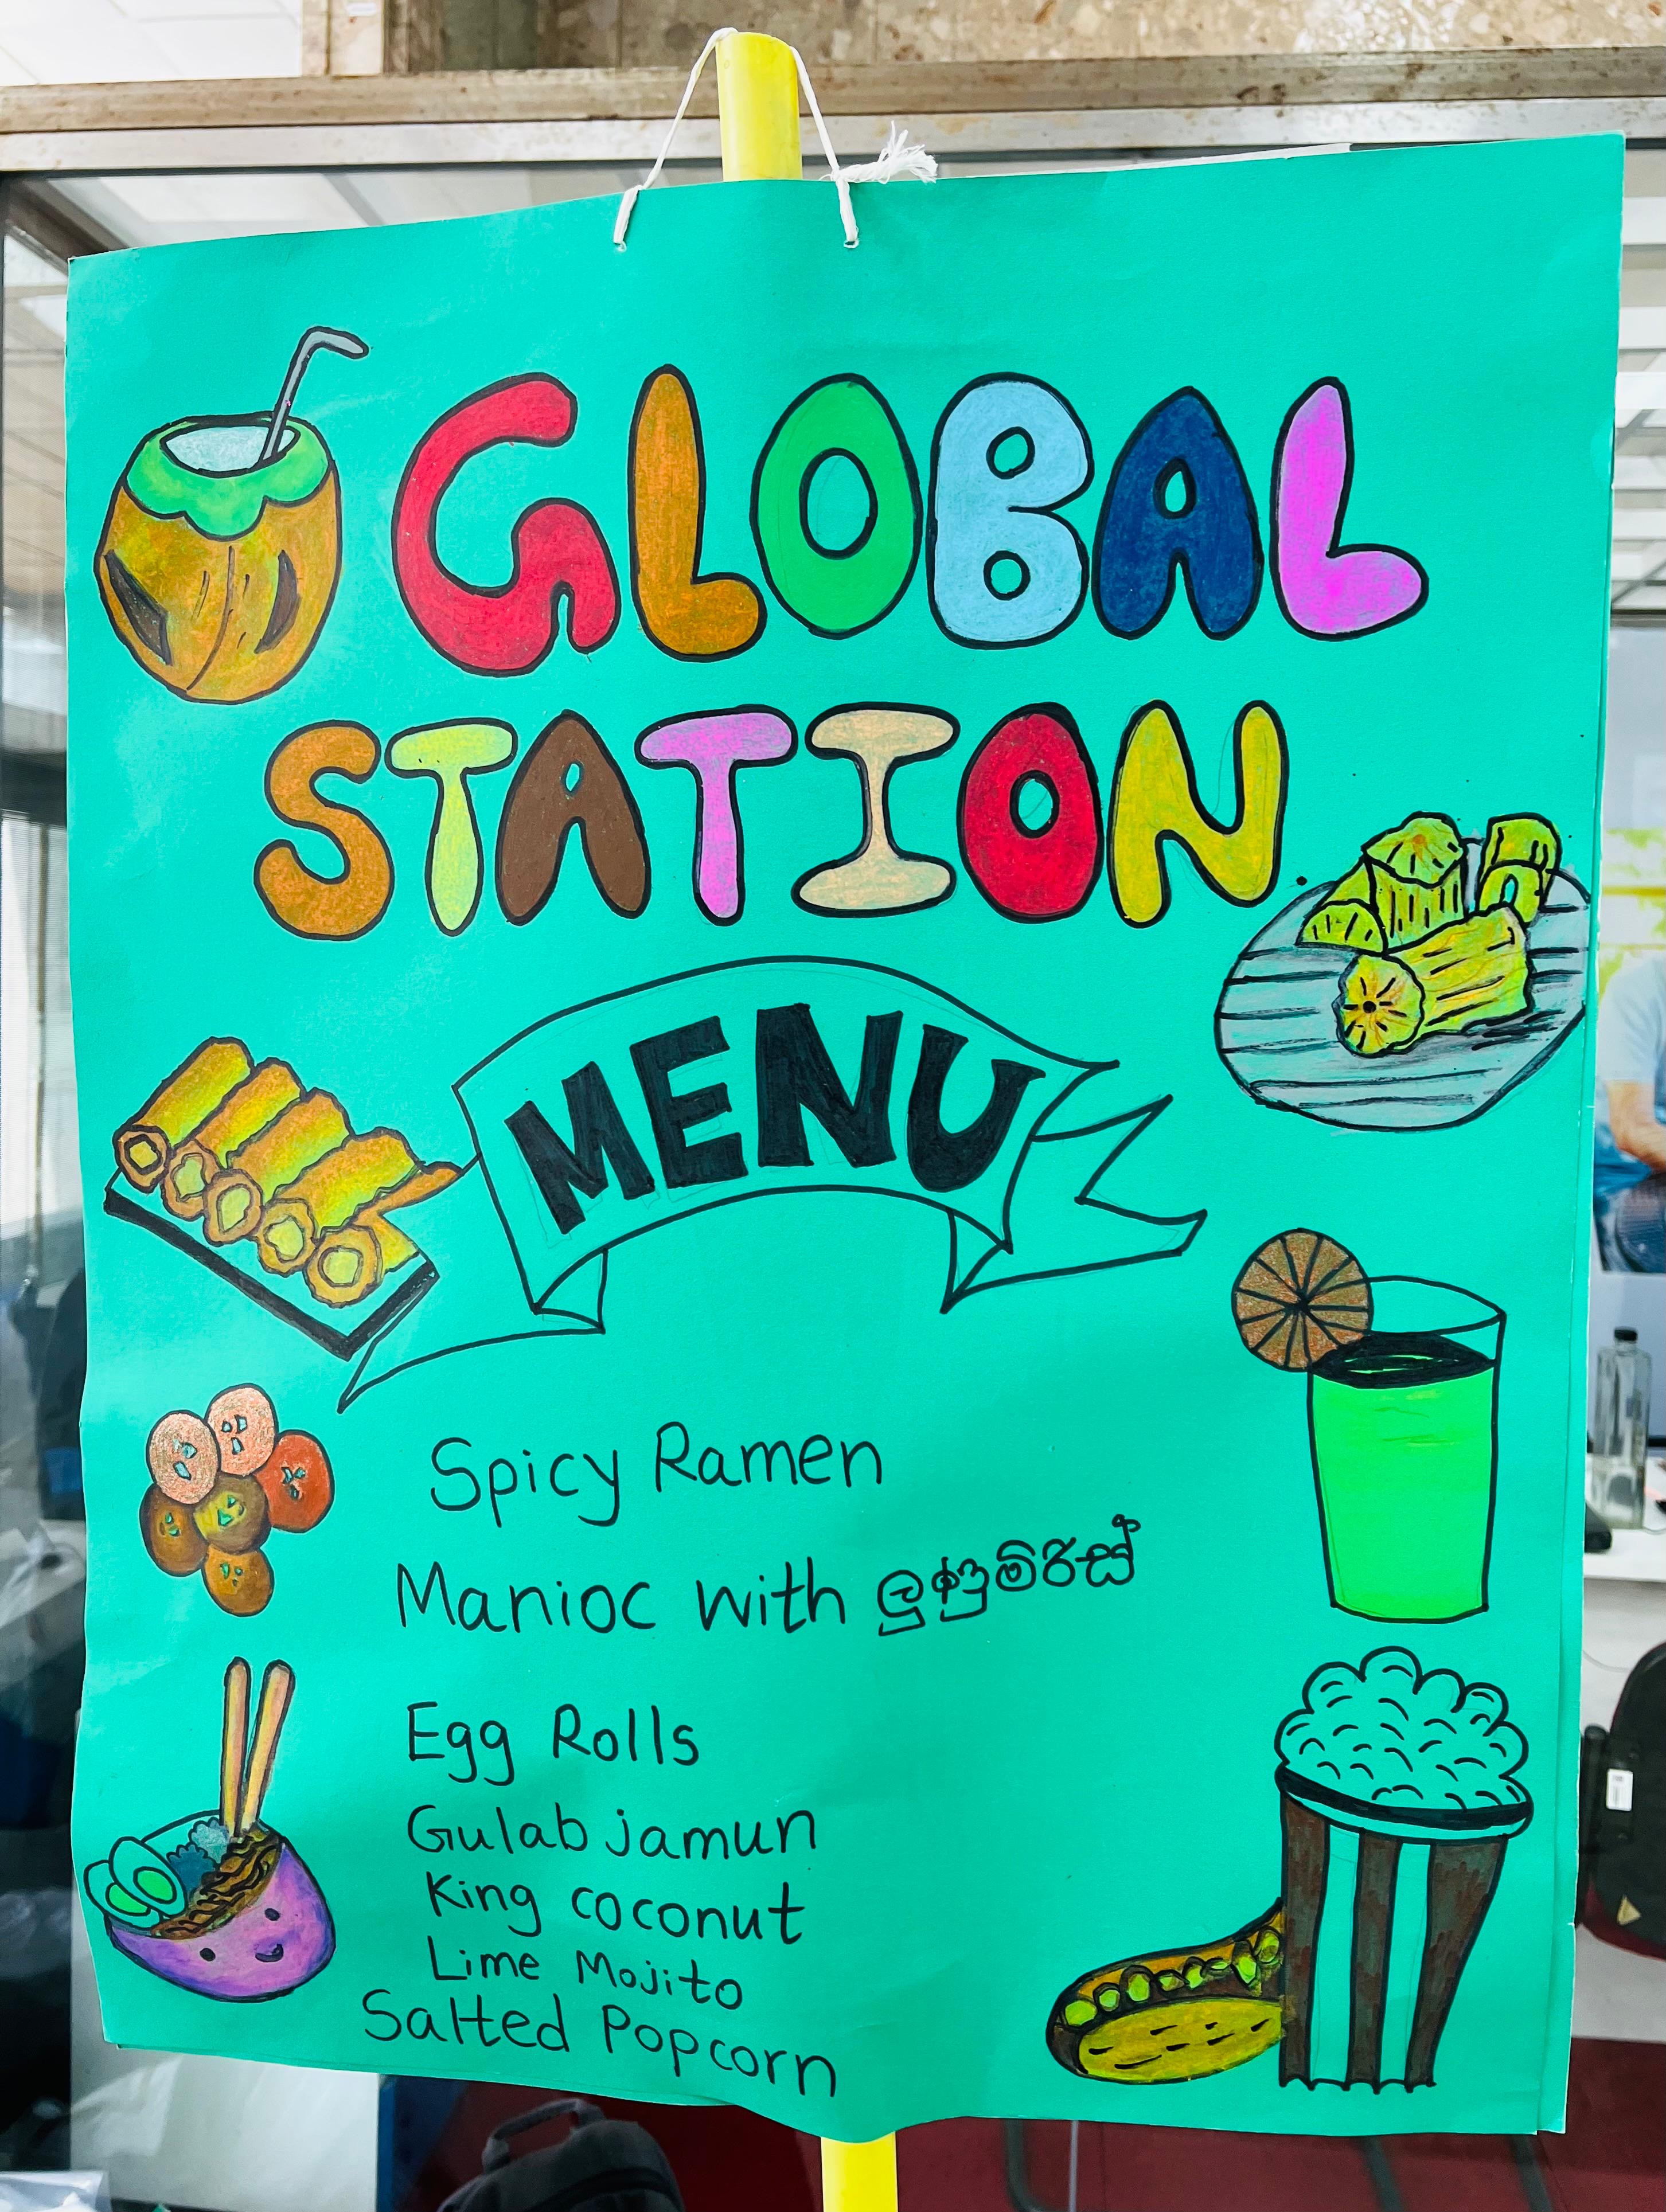 GLOBAL
STATION
MENU
Spicy Ramen
Manioc with ලුණුමිරිස්
Egg Rolls
Gulab jamun
King coconut
Lime Mojito
Salted Popcorn